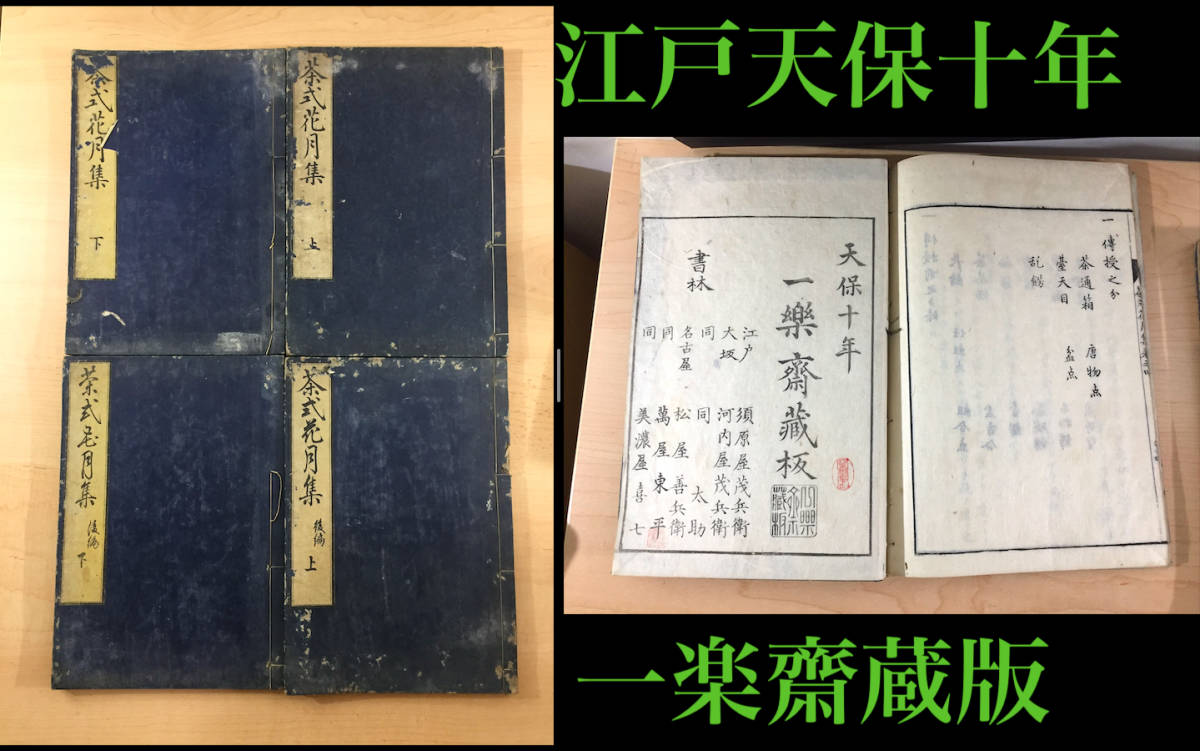 江戸天保十年
茶式花月集
下
茶式花月集
上
茶式花月集
後編
下
茶式花月集
後編
上
一 傳授之分
茶通箱 唐物点
臺天目 盆点
乱飾
天保十年
一樂齋藏板
書林
江戸 須原屋茂兵衛
大坂 河内屋茂兵衛
同 同 太助
名古屋 松屋善兵衛
同 萬屋東平
同 美濃屋喜七
一楽齋蔵版